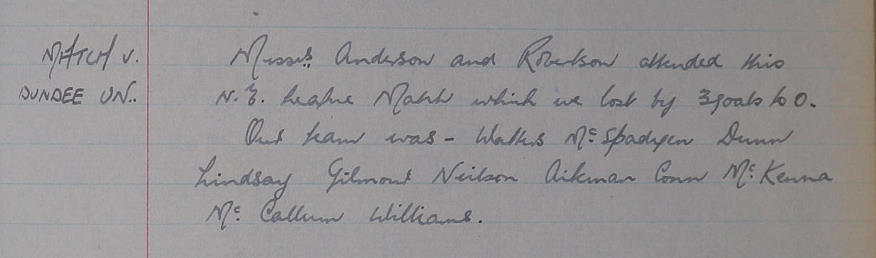 MATCH V.
DUNDEE UN..
Messrs. Anderson and Robertson attended this
N.E. League Match which we lost by 3 goals to 0.
Our team was - Watters McSpadyen Dunn
Lindsay Gilmour Neilson Aikman Conn McKenna
McCallum Williams.